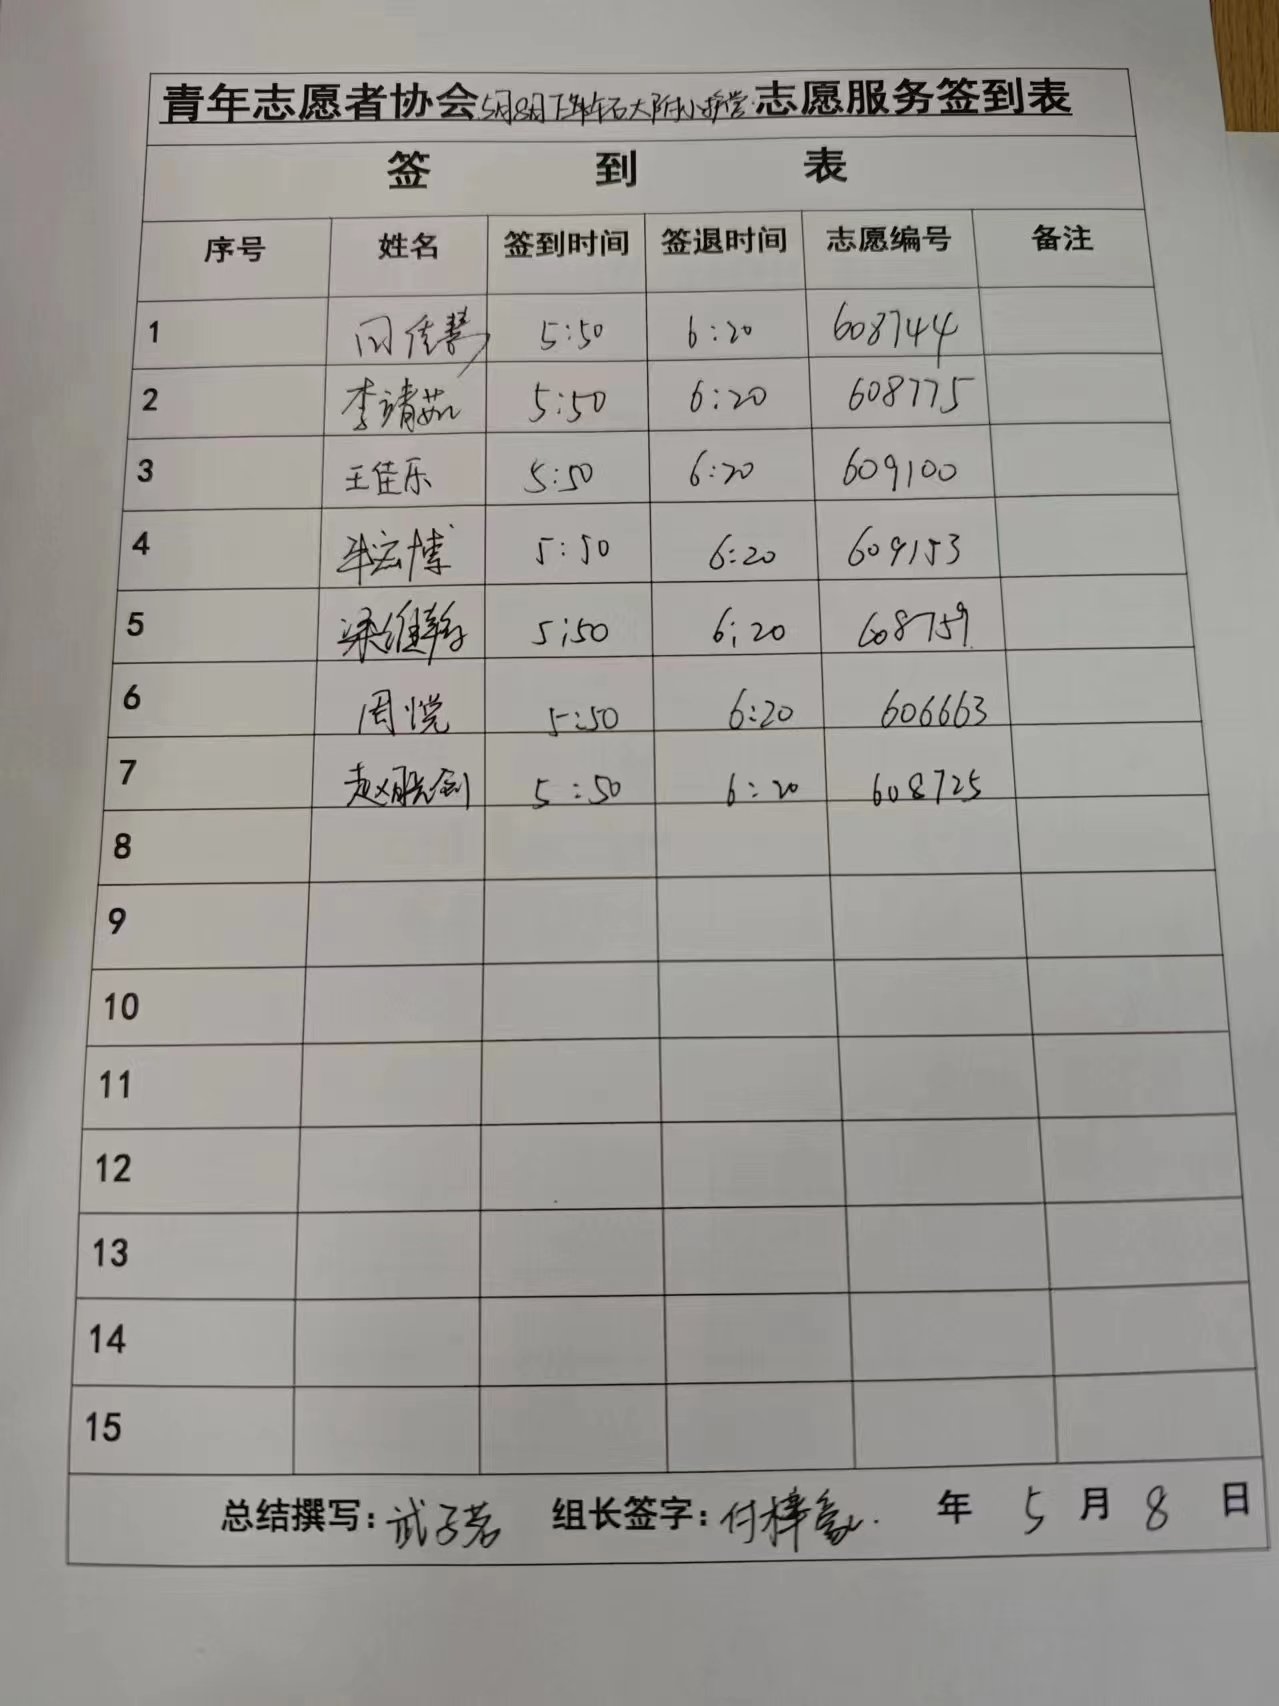 青年志愿者协会5月8日下午石大附小护学志愿服务签到表
签 到 表
序号 姓名 签到时间 签退时间 志愿编号 备注
1 闫佳慧 5:50 6:20 608744
2 李靖茹 5:50 6:20 608775
3 王佳乐 5:50 6:20 609100
4 宏博 5:50 6:20 609153
5 梁维 5:50 6:20 608759
6 周悦 5:50 6:20 606663
7 赵 5:50 6:20 608725
8
9
10
11
12
13
14
15
总结撰写:武子茗 组长签字:付梓 年 5 月 8 日